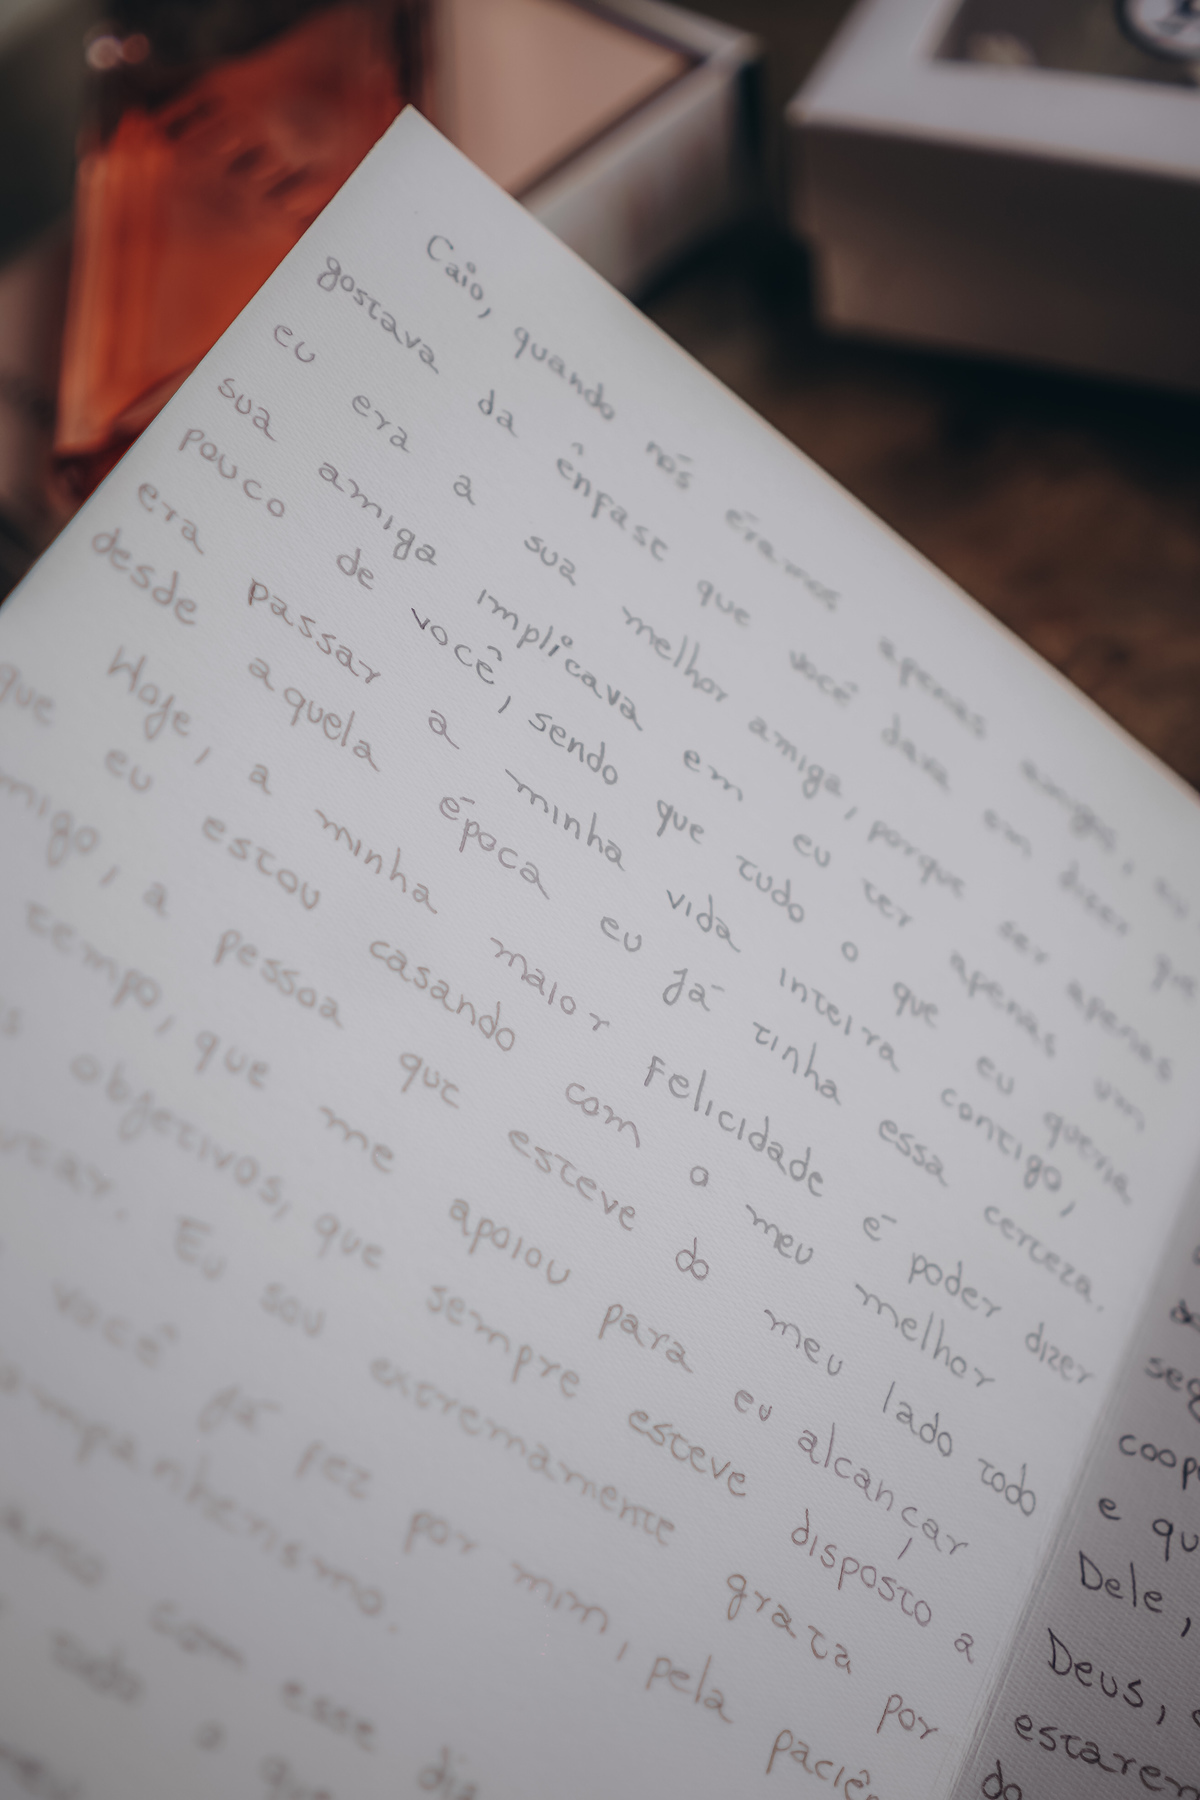 Caio, quando nós éramos apenas amigos, eu
gostava da ênfase que você dava em dizer que
eu era a sua melhor amiga, porque ser apenas
sua amiga implicava em eu ter apenas um
pouco de você, sendo que tudo o que eu queria
era passar a minha vida inteira contigo,
desde aquela época eu já tinha essa certeza.
Hoje, a minha maior felicidade é poder dizer
que eu estou casando com o meu melhor
migo, a pessoa que esteve do meu lado todo
tempo, que me apoiou para eu alcançar
s objetivos, que sempre esteve disposto a
. Eu sou extremamente grata por
você já fez por mim, pela paciên
ompanherismo.
com esse dia
tudo o que
seg
coop
e qu
Dele,
Deus,
estarem
do